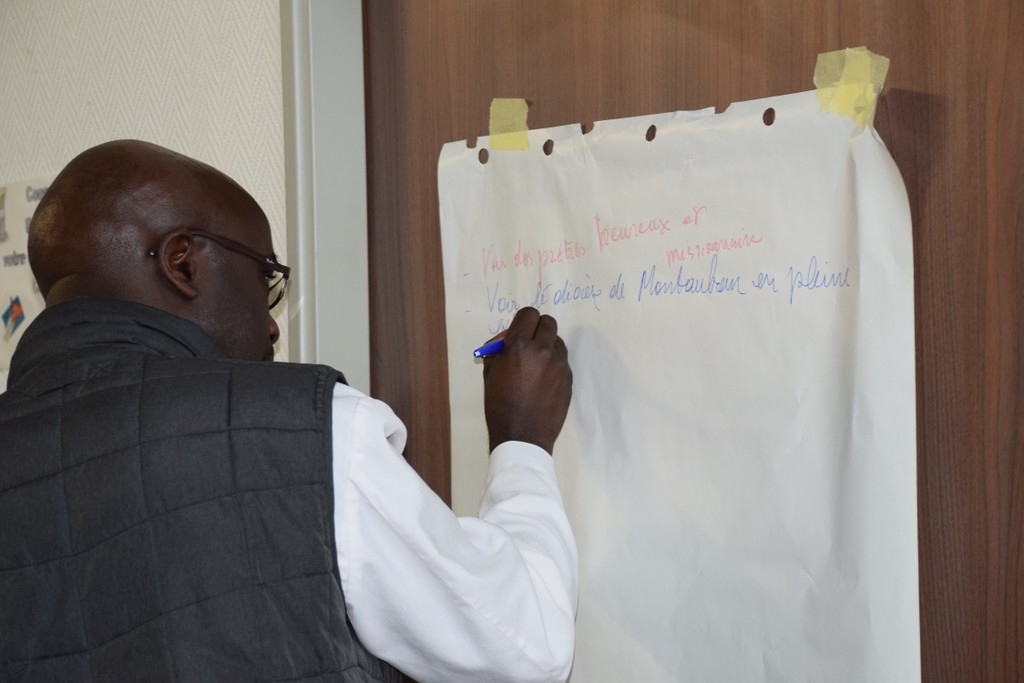 votre
- Voir des prêtres heureux et
missionnaire
- Voir le diocèse de Montauban en pleine